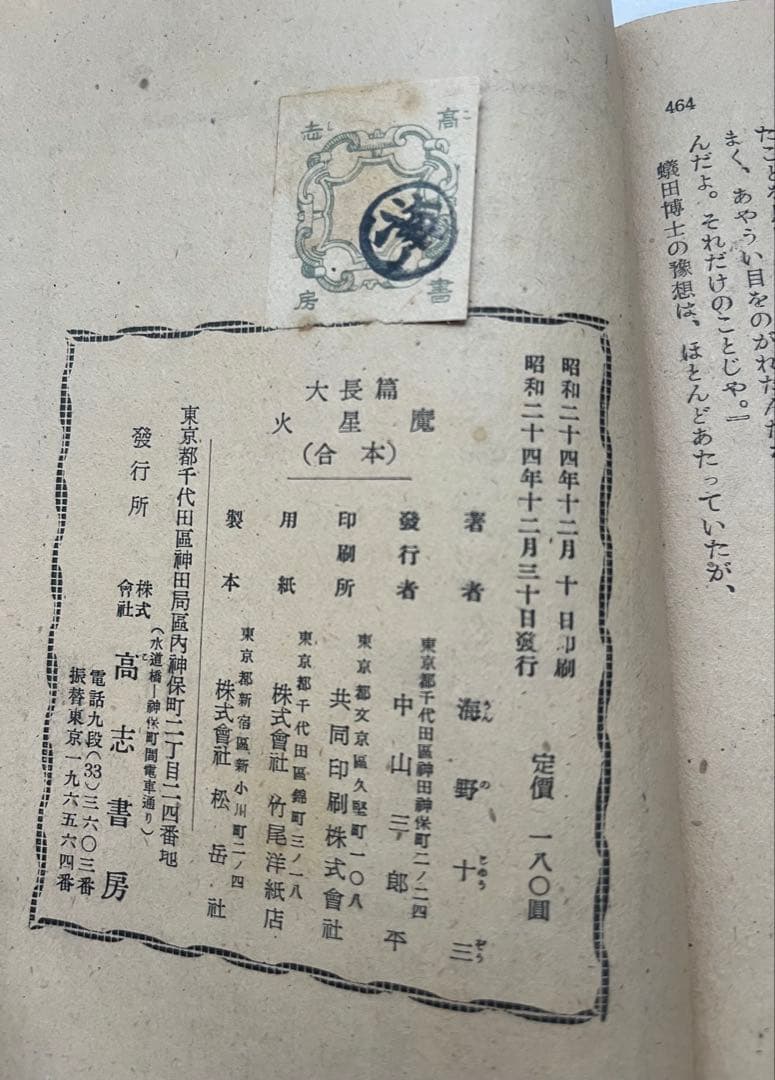 464
まく、あやうい目をのがれたんだ
んだよ。それだけのことじゃ。』
蟻田博士の豫想は、ほとんどあたっていたが、
高志書房
海
昭和二十四年十二月 十 日印刷
昭和二十四年十二月三十日發行
定價 一八〇圓
大長篇
火星魔
(合本)
著者 海野十三
うんのじゅうぞう
發行者 東京都千代田區神田神保町二ノ二四
中山三郎平
印刷所 東京都文京區久堅町一〇八
共同印刷株式會社
用紙 東京都千代田區錦町三ノ一八
株式會社 竹尾洋紙店
製本 東京都新宿區新小川町二ノ四
株式會社 松岳社
東京都千代田區神田局區內神保町二丁目二四番地
(水道橋―神保町間電車通り)
發行所 株式會社 高志書房
電話九段(33)三六〇三番
振替東京一九六五六四番